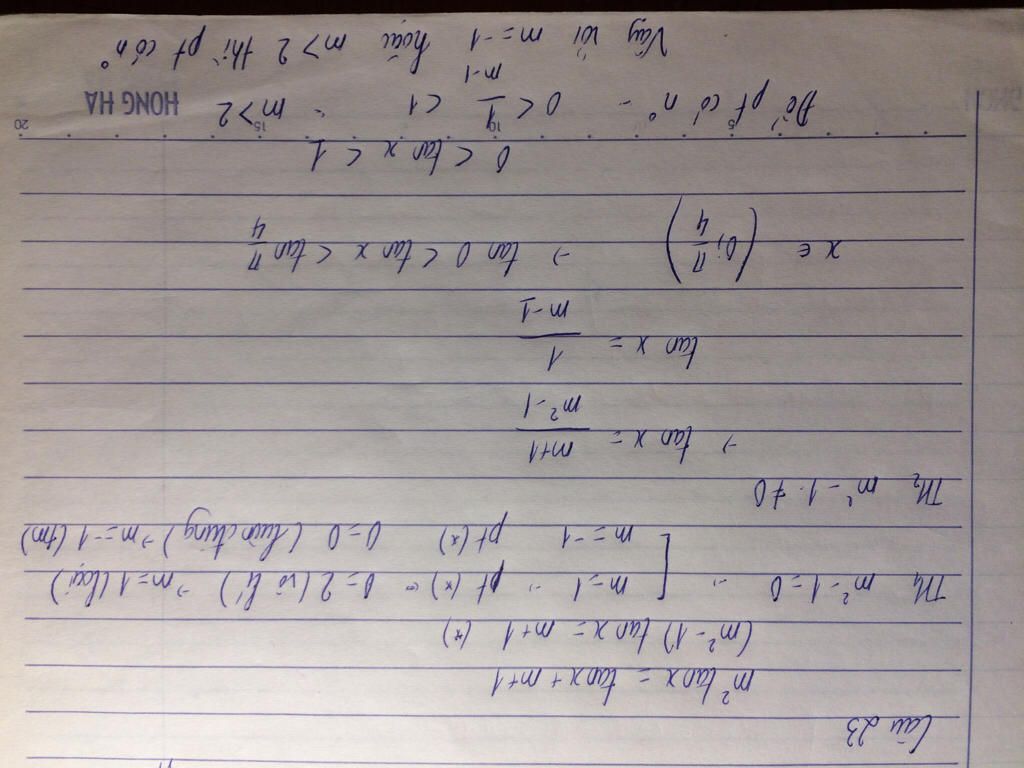 Câu 23
m² tanx = tanx + m+1
(m²-1) tanx = m+1 (*)
TH₁ m²-1=0 [ m=1 pt(*) 0=2 (vô lí) → m=1 (loại)
m=-1 pt(*) 0=0 (luôn đúng) → m=-1 (tm)
TH₂ m²-1 ≠ 0
→ tan x = m+1 / m²-1
tan x = 1 / m-1
x ∈ (0; π/4) → tan 0 < tan x < tan π/4
0 < tan x < 1
20 15 10 5
Để pt có n⁰ 0 < 1 / m-1 < 1 m>2 HONG HA
Vậy với m=-1 hoặc m>2 thì pt có n⁰